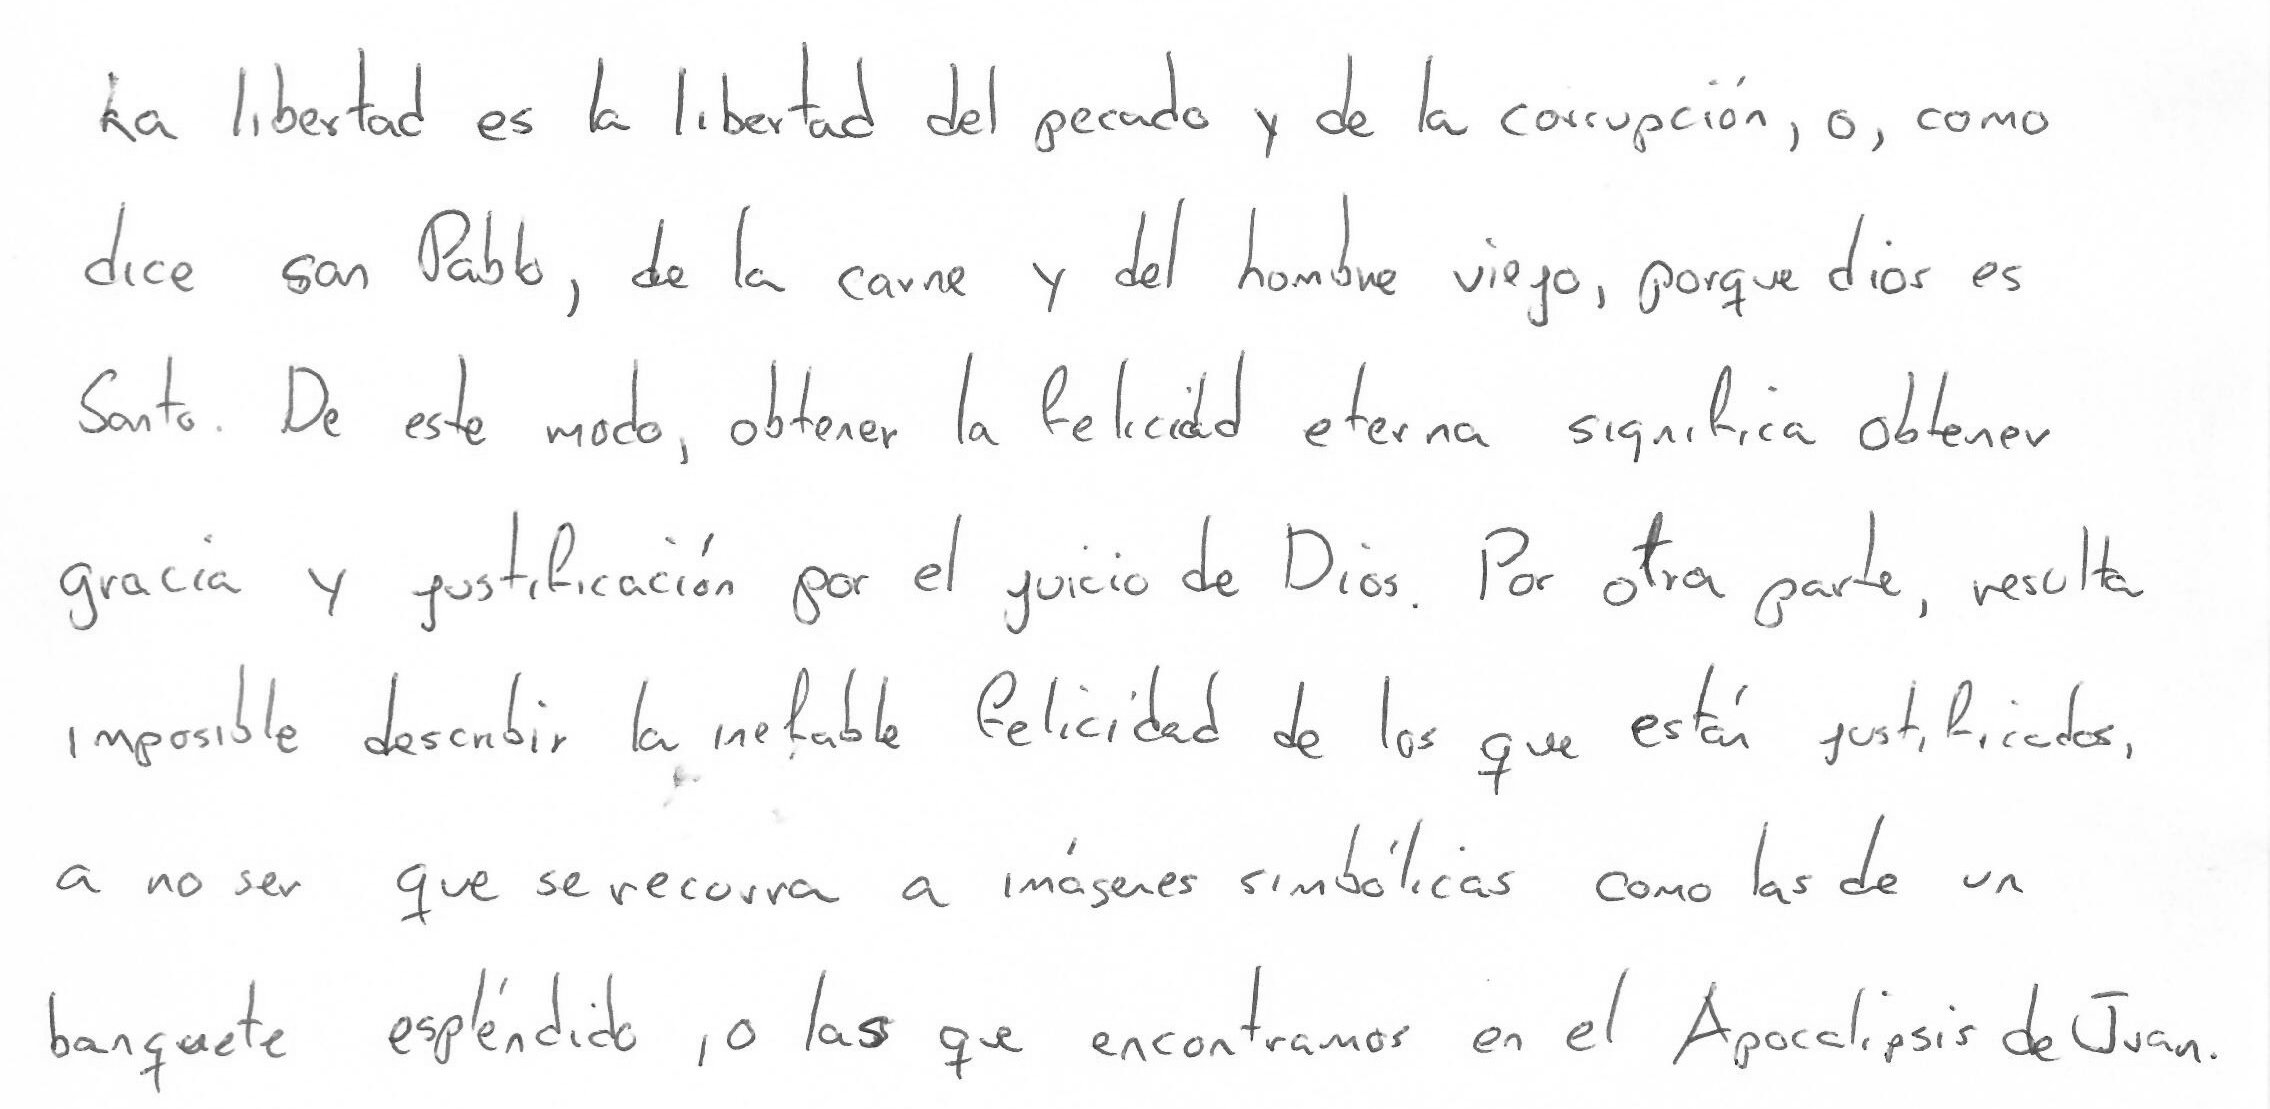 La libertad es la libertad del pecado y de la corrupción, o, como
dice san Pablo, de la carne y del hombre viejo, porque dios es
Santo. De este modo, obtener la felicidad eterna significa obtener
gracia y justificación por el juicio de Dios. Por otra parte, resulta
imposible describir la inefable felicidad de los que están justificados,
a no ser que se recorra a imágenes simbólicas como las de un
banquete espléndido, o las que encontramos en el Apocalipsis de Juan.